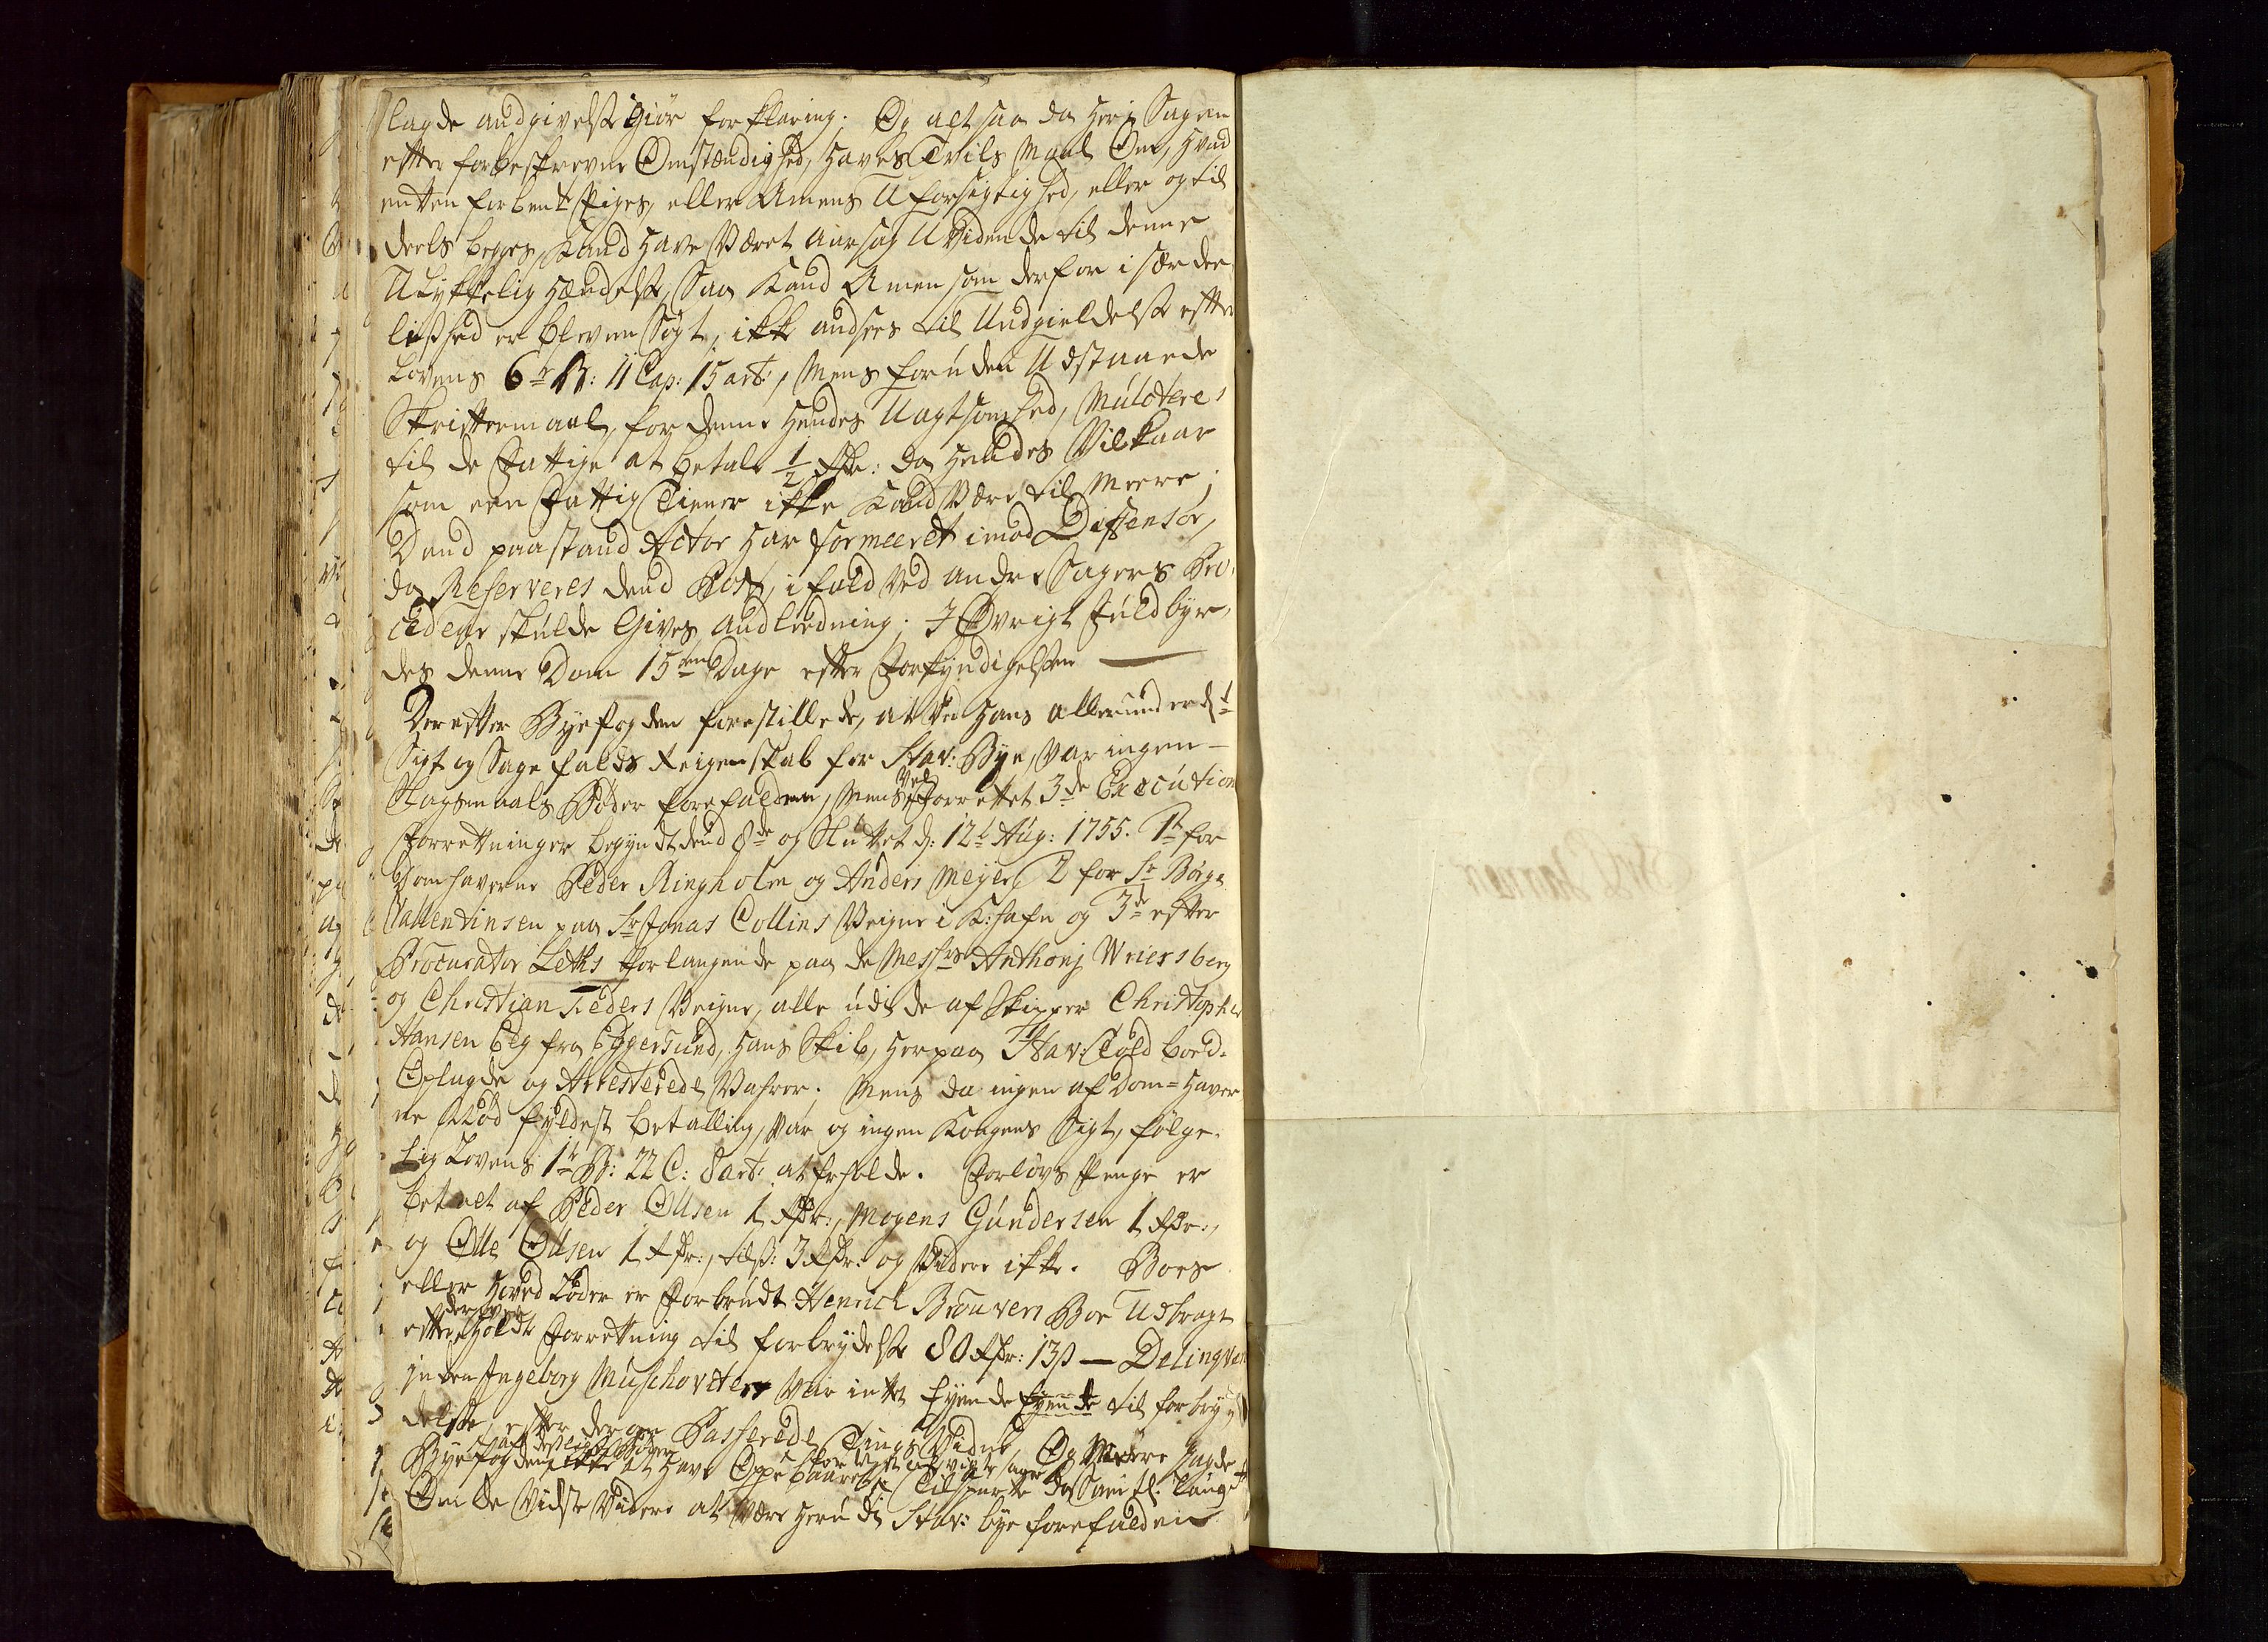 lagde andgivelse Giør forklaring; Og alt saa da her i Sagen
efter forbeskrevne Omstændighed, haves Tvils Maal Om, hvad
enten forbemte Piges, eller Amens Uforsigtighed, eller og til
deels begges, Kand have Været aarsag U Vidende til denne
Ulykkelig hændelse, Saa Kand Amen som derfor i sær dee
lighed er bleven Søgt, ikke andsees til Undgieldelse efter
Lovens 6te B: 11 Cap: 15 art:, Mens foruden Udstaaede
Skriftemaal, for denne hendes Uagtsomhed, Mulcteres
til de Fattige at betale 1/2 Rdr: da hendes Vilkaar
som een Fattig Tiener ikke Kand Være til Meere;
Dend paastand Actor har formeeret imod Deffensor,
da Reserveres dend Post, i fald Ved andre Sagers Pro
cedeur skulde Gives andleedning; I Øvrigt Fuldbyr,
des denne Dom 15ten Dage efter Forkyndigelsen
Derefter Byefogden forestillede, at Ved hans allerunderdste
Sigt og Sagefalds Reigenskab for Stav: Bye, Var ingen
Slagsmaals Bøder forefalden, Mens Vel Forrettet 3de Execution
Forrettninger begyndt dend 8de og Sluttet d: 12te Aug: 1755. 1te for
Domhaverne Peder Ringholm og Anders Meyer, 2 for Sr Børge
Vallentinsen paa Sr Jonas Collins Veigne i K:hafn og 3de efter
Procurator Leths Forlangende paa de Messrs Anthonj Wriersberg
og Christian Feders Veigne, alle udi de af Skipper Christopher
Hansen Eeg fra Eggersund, hans Skib, her paa Stav: Told boed
Oplagde og Arresterede Vahrer. Mens da ingen af Dom=haver
ne Nød fyldest betalling, Var og ingen Kongens Sigt, følge
lig Lovens 1te B: 22 C: 8 art: at erholde. Forlovs Penge er
betalt af Peder Olsen 1 Rdr:, Mogens Gundersen 1 Rdr:,
og Olle Olsen 1 Rdr:, tilss: 3 Rdr. og Videre ikke. Boes
eller Hoved Lod er er Forbrudt Henrich Brouvers Boe Udbragt
efter derover Holdte Forrettning til forbrydelse 80 Rdr: 13 s — Delinqven
inden Ingeborg Muschoviters Var intet Eyende Eyende til forbry
delse, efter derom Passerede Tings Vidne, Og Meere Sagde
Byefogden ikke at have Oppebaaret Tilspurte da Samtl: Laugrt
Om de Vidste Videre at Være herudi Stav: bye forefalden